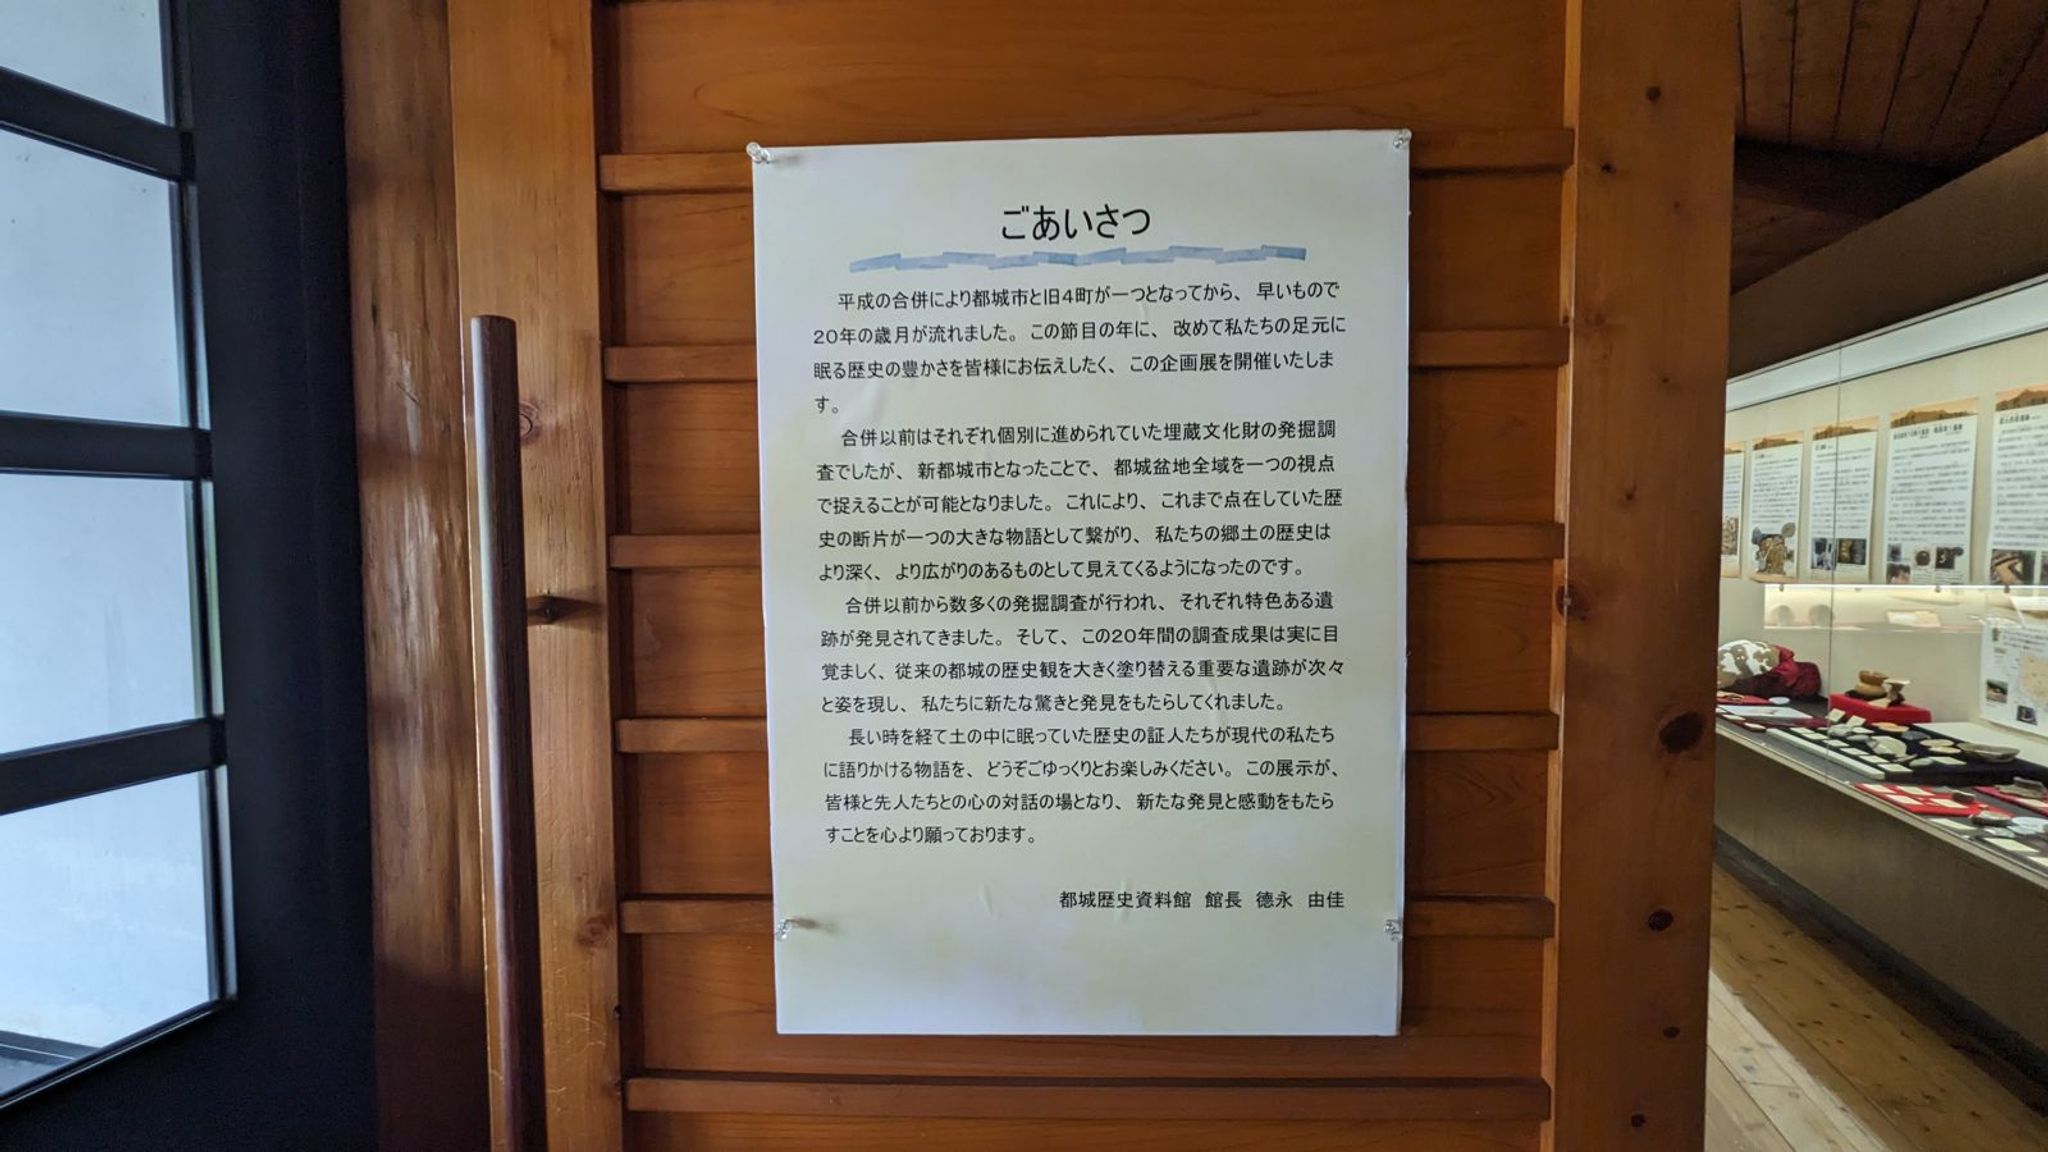 ごあいさつ
平成の合併により都城市と旧4町が一つとなってから、早いもので
20年の歳月が流れました。この節目の年に、改めて私たちの足元に
眠る歴史の豊かさを皆様にお伝えしたく、この企画展を開催いたしま
す。
合併以前はそれぞれ個別に進められていた埋蔵文化財の発掘調
査でしたが、新都城市となったことで、都城盆地全域を一つの視点
で捉えることが可能となりました。これにより、これまで点在していた歴
史の断片が一つの大きな物語として繋がり、私たちの郷土の歴史は
より深く、より広がりのあるものとして見えてくるようになったのです。
合併以前から数多くの発掘調査が行われ、それぞれ特色ある遺
跡が発見されてきました。そして、この20年間の調査成果は実に目
覚ましく、従来の都城の歴史観を大きく塗り替える重要な遺跡が次々
と姿を現し、私たちに新たな驚きと発見をもたらしてくれました。
長い時を経て土の中に眠っていた歴史の証人たちが現代の私たち
に語りかける物語を、どうぞごゆっくりとお楽しみください。この展示が、
皆様と先人たちとの心の対話の場となり、新たな発見と感動をもたら
すことを心より願っております。
都城歴史資料館 館長 德永 由佳